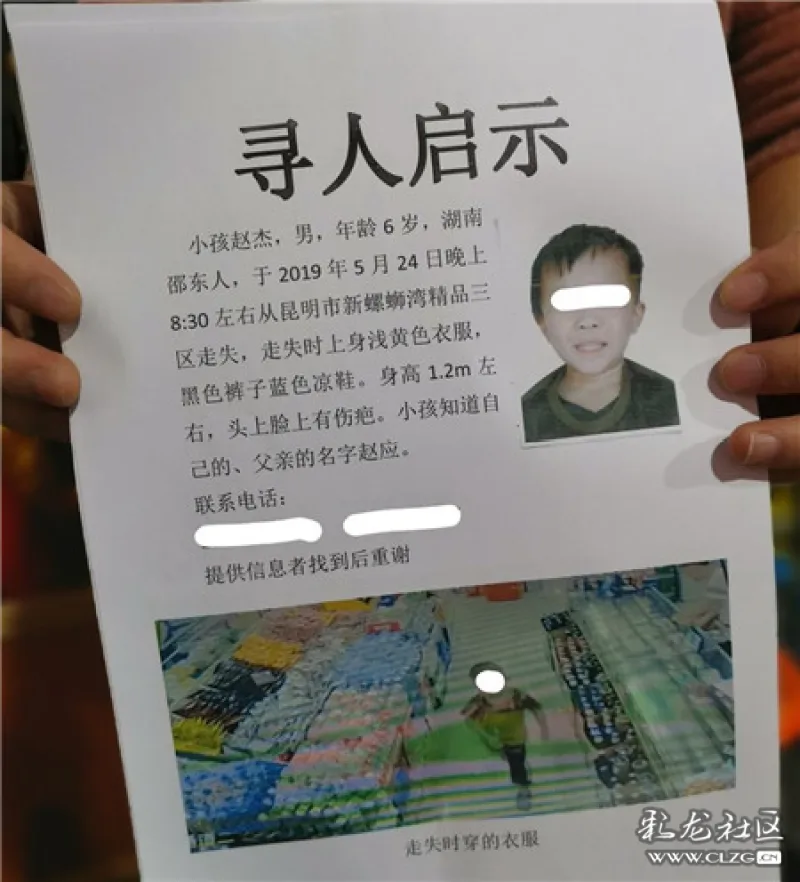 寻人启示
小孩赵杰，男，年龄 6 岁，湖南
邵东人，于 2019 年 5 月 24 日晚上
8:30 左右从昆明市新螺蛳湾精品三
区走失，走失时上身浅黄色衣服，
黑色裤子蓝色凉鞋。身高 1.2m 左
右，头上脸上有伤疤。小孩知道自
己的、父亲的名字赵应。
联系电话：
提供信息者找到后重谢
走失时穿的衣服
彩龙社区
WWW.CLZG.CN